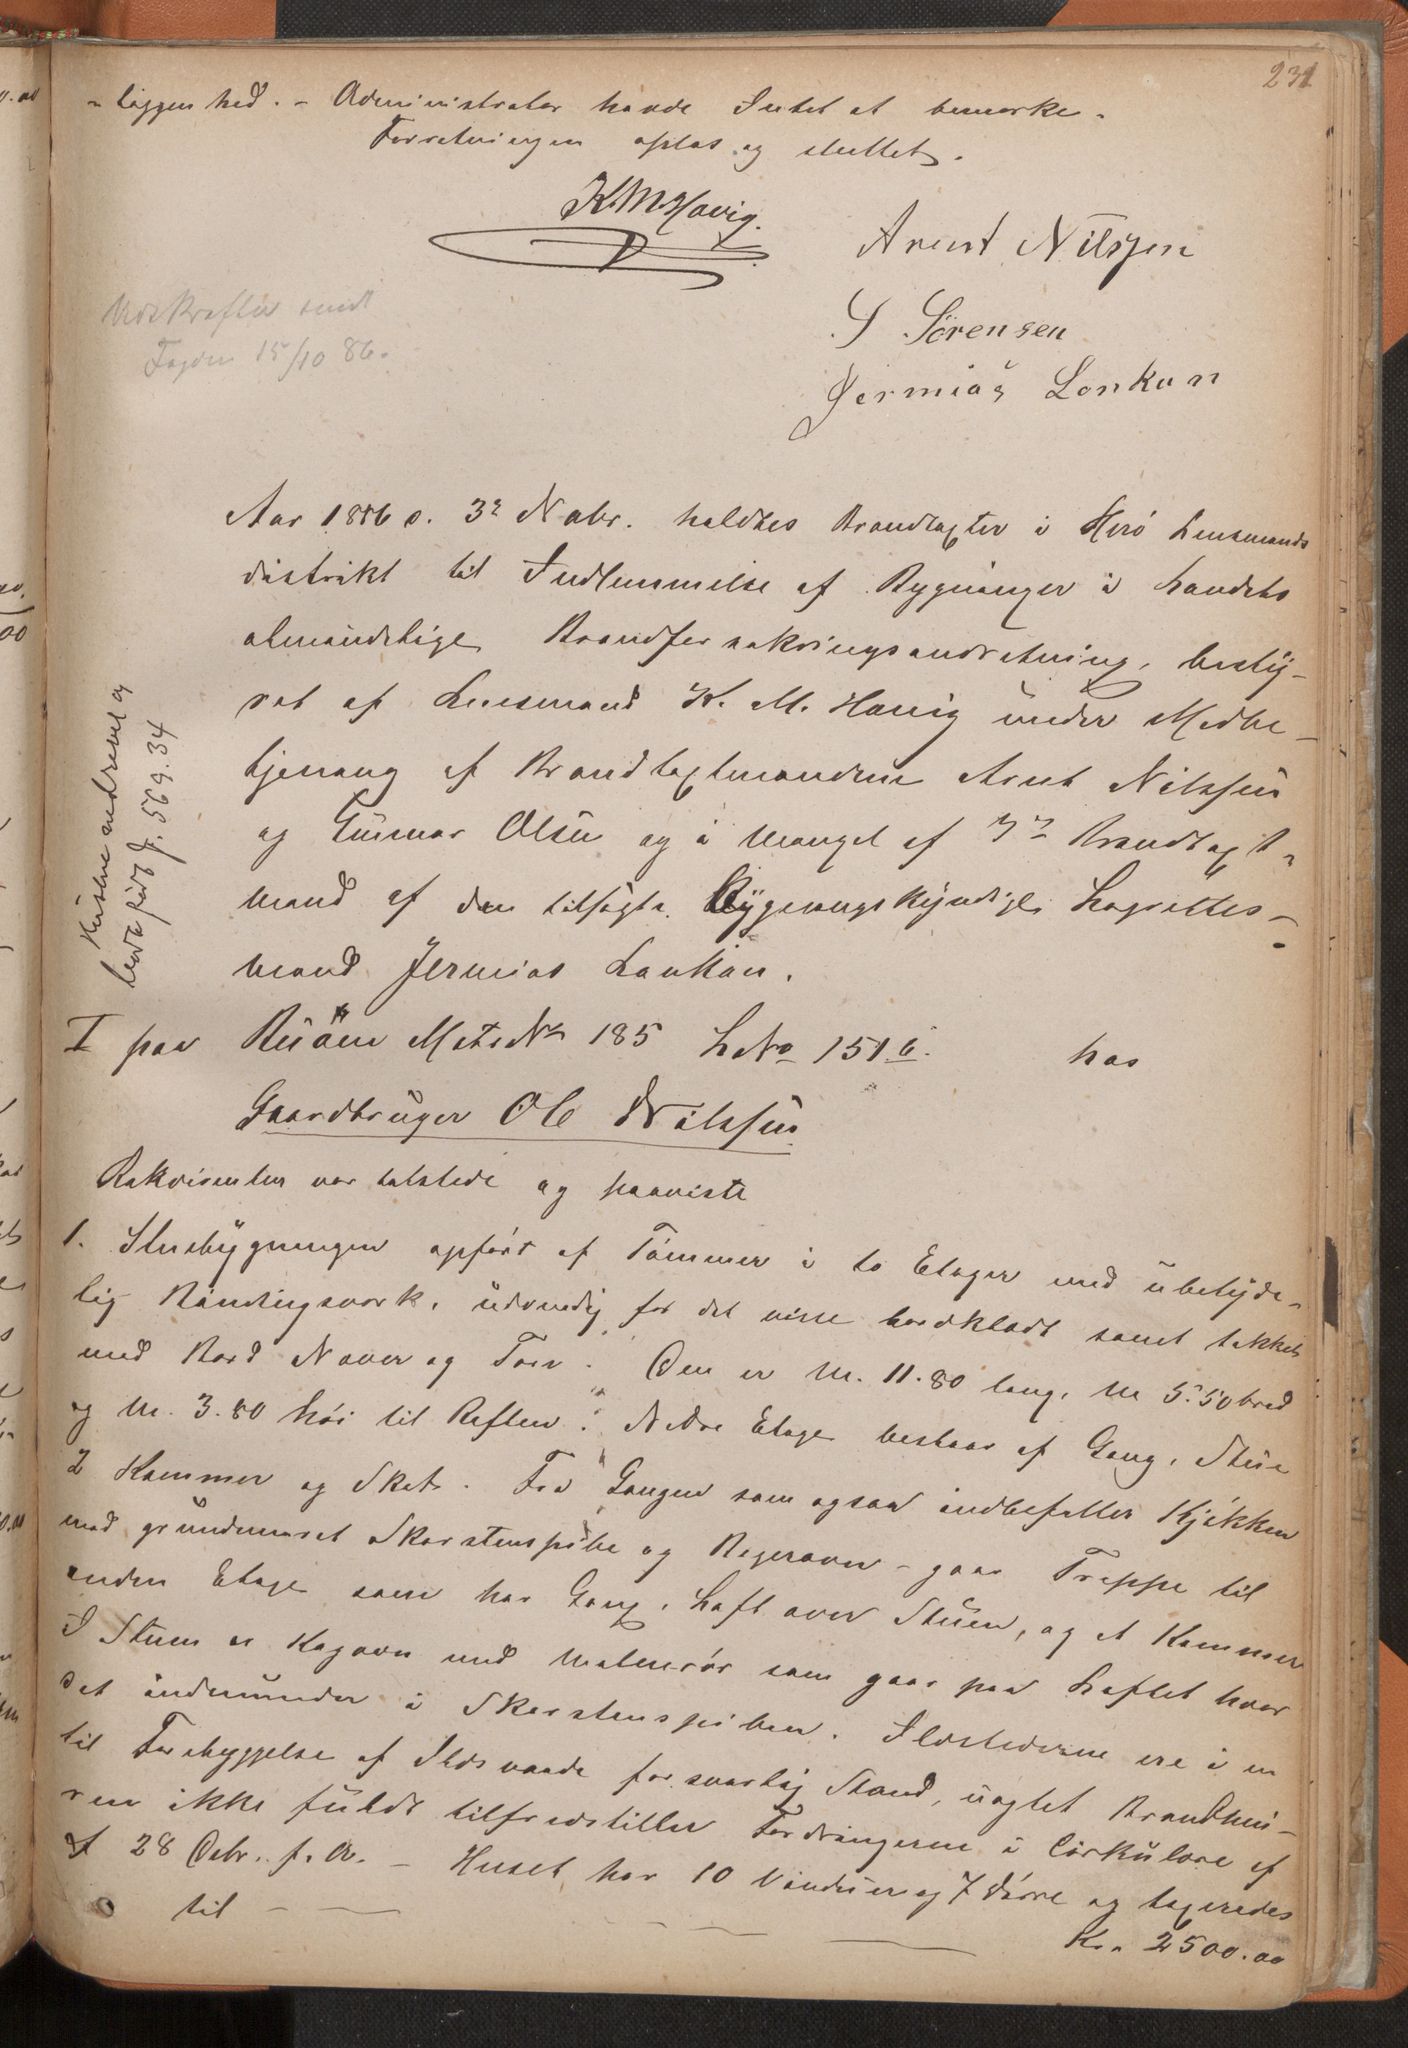 231
- liggenhed. - Administrator havde Intet at bemærke.
Forretningen oplæst og sluttet.
K.M. Havig.
Arent Nilsen
S Sörensen
Jermias Lonkan
Udskrifter sendt
Fogden 15/10 86.
Aar 1886 d. 3die Novbr. holdtes Brandtaxter i Herö Lensmands
distrikt til Indlemmelse af Bygninger i Landets
almindelige Brandforsikringsindretning, besty-
ret af Lensmand K. M. Havig under Medbe-
tjening af Brandtaxtmændene Arnt Nilssen
og Gunnar Olsen og i Mangel af 3die Brandtaxt-
mand af den tilsagte Bygningskyndige Lagrettes-
mand Jermias Lonkan.
Husene nedrevet og
bortført f. 569. 34
I paa Rüöen Mats No 185 LNo 151 b. hos
Gaardbruger Ole Nilssen
Rekvirenten var tilstede og paaviste
1. Stuebygningen opfört af Tömmer i to Etager med ubetyde-
lig Bindingsværk, udvendig for det meste bordklædt samt tækket
med Bord Næver og Torv. Den er M. 11.80 lang, M 5.50 bred
og M. 3.80 höi til Raften. Nedre Etage bestaar af Gang, Stue
2 Kammer og Skot. Fra Gangen som ogsaa indbefatter Kjökken
med grundmuret Skorstenspibe og Bagerovn - gaar Trappe til
anden Etage som har Gang, Loft over Stuen, og et Kammer
I Stuen er Kogovn med Malmrör som gaar paa Loftet hvor
det indmunder i Skorstenspiben. Ildstederne ere i en
til Forebyggelse af Ildsvaade forsvarlig Stand, uagtet Brandmu-
ren ikke fuldt tilfredstiller Fordringerne i Cirkulære af
28 Debr. f. A. - Huset har 10 Vinduer og 7 Dörre og taxeredes
til - - - - - Kr. 2500.00